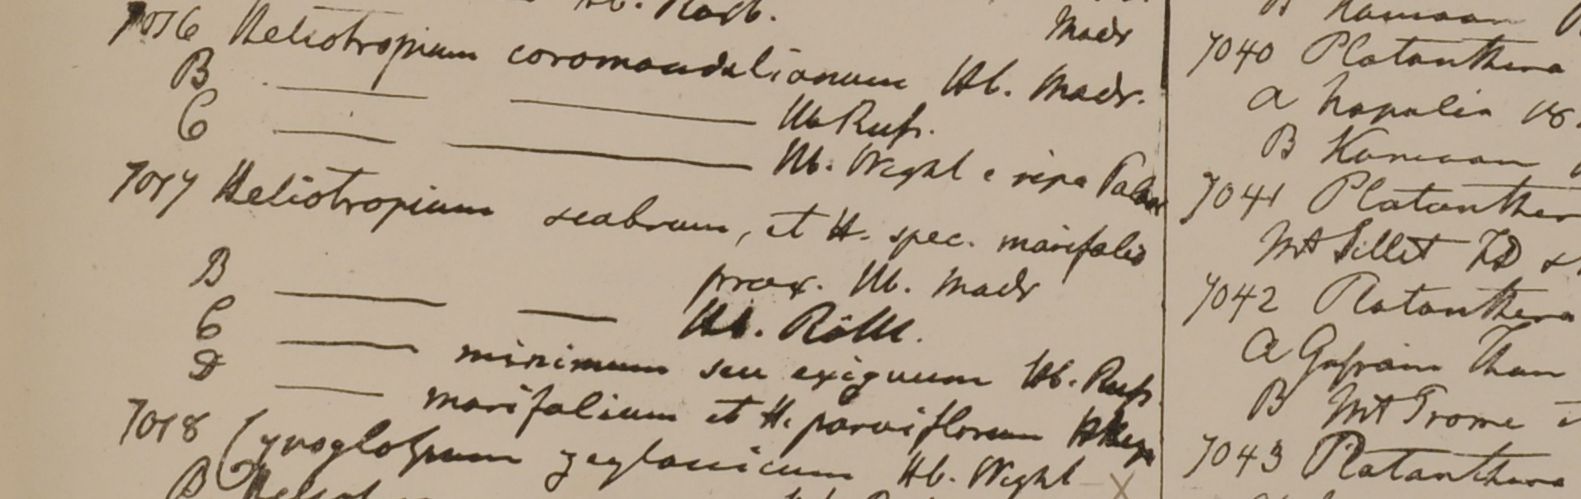 Madr
7016 Heliotropium coromandelianum Hb. Madr.
B — — Hb Russ.
C — — Hb. Wight e ripa
7017 Heliotropium scabrum, et H. spec. marifolio
prox. Hb. Madr
B — — Hb. Röttl.
C — minimum seu exiguum Hb. Russ.
D — marifolium et H. parviflorum
7018 Cynoglossum zeylanicum Hb. Wight X
B
B Kamaon
7040 Platanthera
a Napalia
B Kamaon
7041 Platanthera
Mt Sillet FD
7042 Platanthera
a
B Mt Prome
7043 Platanthera